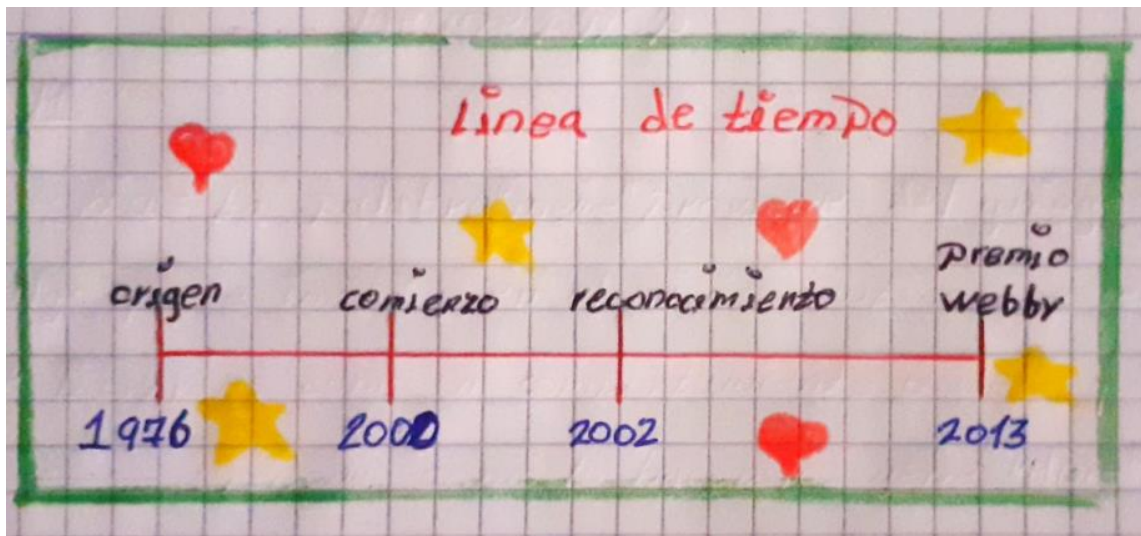 Linea de tiempo
origen
comienzo
reconocimiento
premio
webby
1976
2000
2002
2013